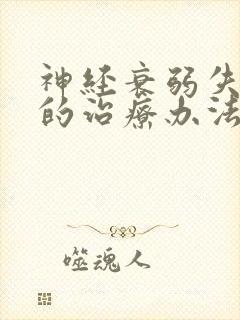 神经衰弱失
的治疗办法
噬魂人